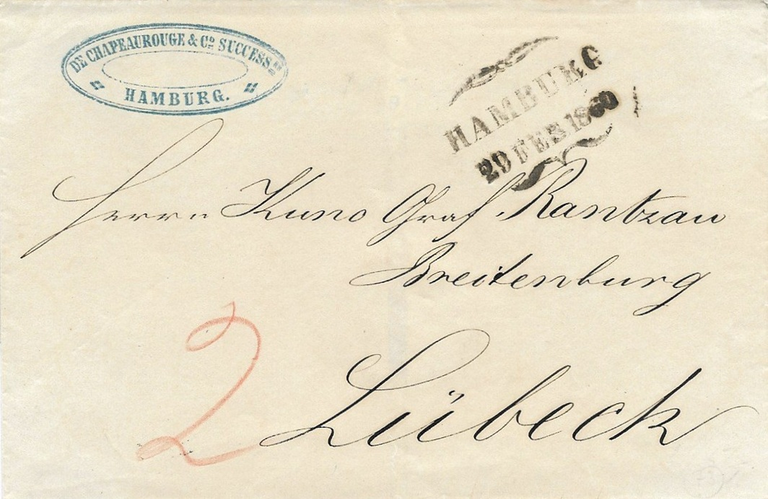 DE CHAPEAUROUGE & Co. SUCCESSRS
HAMBURG.
HAMBURG
29 FEB 1860
Herrn Kuno Graf Rantzau
Breitenburg
2
Lübeck